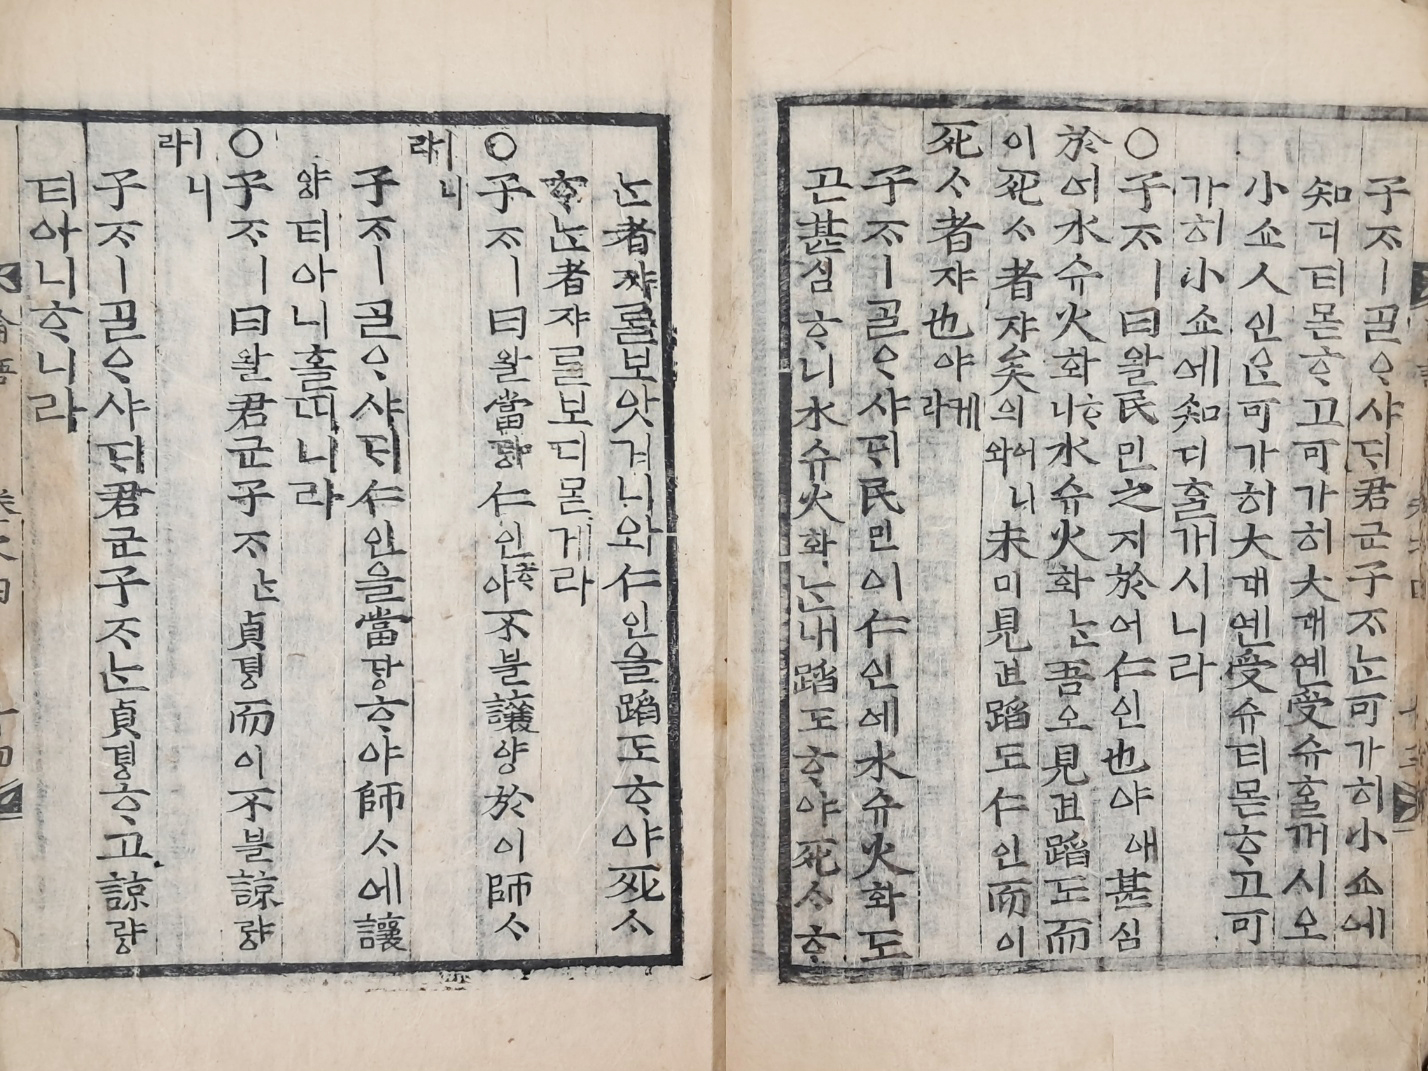 子ᄌᆞㅣᄀᆞᆯᄋᆞ샤ᄃᆡ君군子ᄌᆞᄂᆞᆫ可가히小쇼에
知디티몯ᄒᆞ고可가히大대옌受슈ᄒᆞᆯ꺼시오
小쇼人인ᄋᆞᆫ可가히大대옌受슈티몯ᄒᆞ고可
가히小쇼에知디ᄒᆞᆯ꺼시니라
○子ᄌᆞㅣ曰왈民민之지於어仁인也야애甚심
於어水슈火화ᄒᆞ니水슈火화ᄂᆞᆫ吾오見견蹈도而
이死ᄉᆞ者쟈矣의어니와未미見견蹈도仁인而이
死ᄉᆞ者쟈也야게라
子ᄌᆞㅣᄀᆞᆯᄋᆞ샤ᄃᆡ民민이仁인에水슈火화도
곤甚심ᄒᆞ니水슈火화ᄂᆞᆫ내蹈도ᄒᆞ야死ᄉᆞᄒᆞ
ᄂᆞᆫ者쟈ᄅᆞᆯ보앗거니와仁인을蹈도ᄒᆞ야死ᄉᆞ
ᄒᆞᄂᆞᆫ者쟈ᄅᆞᆯ보디몯게라
○子ᄌᆞㅣ曰왈當당仁인ᄒᆞ야不불讓양於이師ᄉᆞ
ㅣ니라
子ᄌᆞㅣᄀᆞᆯᄋᆞ샤ᄃᆡ仁인을當당ᄒᆞ야師ᄉᆞ에讓
양티아니홀띠니라
○子ᄌᆞㅣ曰왈君군子ᄌᆞᄂᆞᆫ貞뎡而이不불諒량
이니라
子ᄌᆞㅣᄀᆞᆯᄋᆞ샤ᄃᆡ君군子ᄌᆞᄂᆞᆫ貞뎡ᄒᆞ고諒량
티아니ᄒᆞ니라